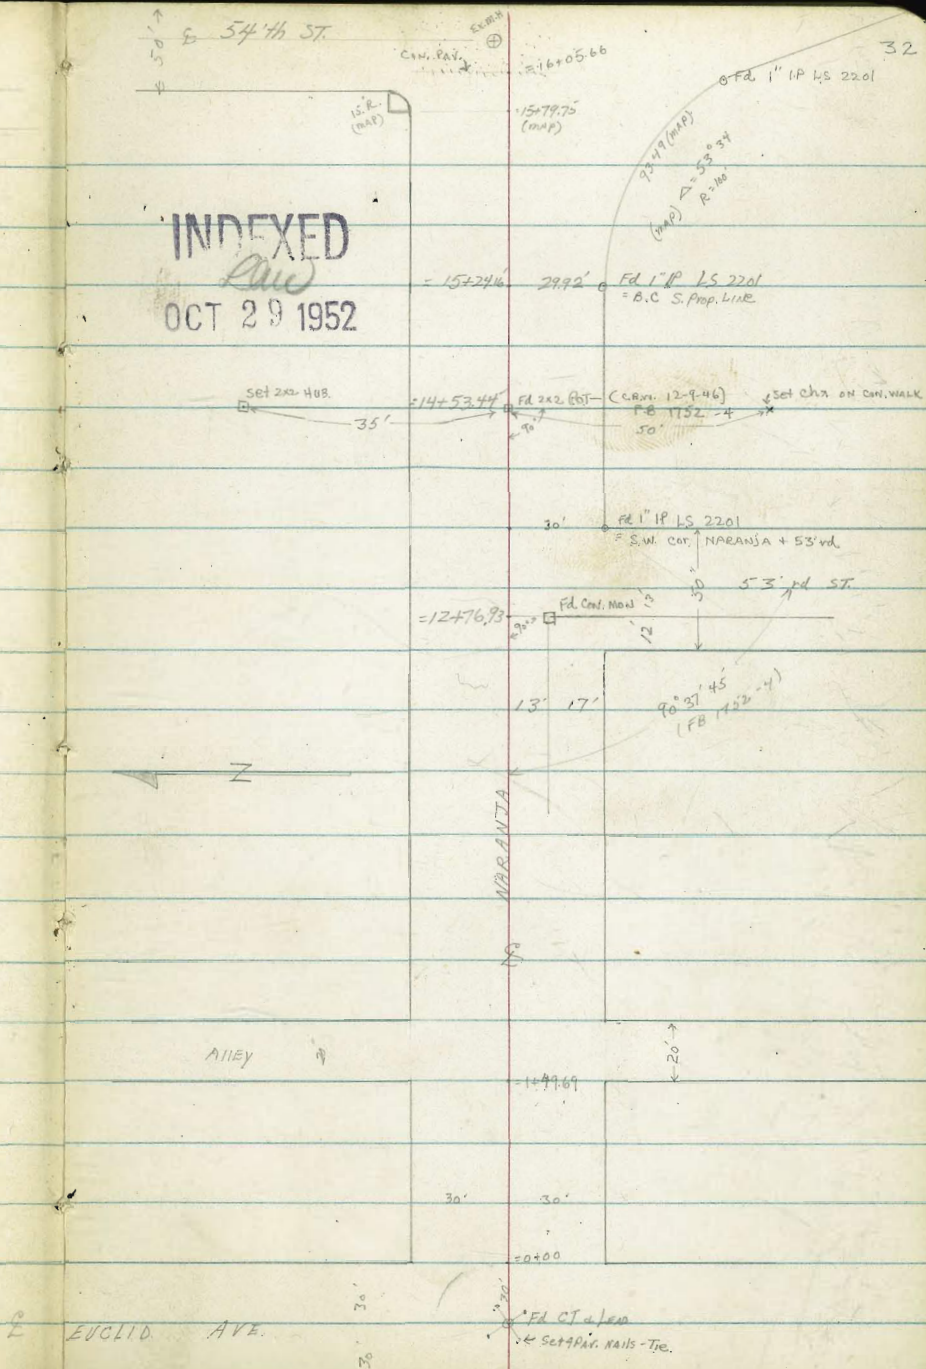 32
50'
℄ 54'th ST.
Ex.M.H
CON. PAV.
=16+05.66
Fd 1" I.P LS 2201
15'R.
(MAP)
=15+79.75
(MAP)
93.49 (MAP)
(MAP) Δ=53°34
R=100'
INDEXED
OCT 29 1952
= 15+24.16
29.92'
Fd 1" IP LS 2201
= B.C S. Prop. LINE
Set 2x2 HUB.
35'
=14+53.44
Fd 2x2 POT — (C.R.M. 12-9-46)
F.B 1752-4
90°
50'
Set chx ON CON. WALK
30'
Fd 1" IP LS 2201
= S.W. Cor. NARANJA + 53'rd
50'
53'rd ST.
=12+76.93
90°
Fd. CON. MON
13'
12'
13' 17'
90°37'45"
(FB 1752-4)
N
NARANJA
℄
Alley
20'
20'
=1+49.69
30' 30'
=0+00
30'
30'
30'
℄ EUCLID AVE.
Fd CT & Lead
Set 4 PAV. NAILS - Tie.